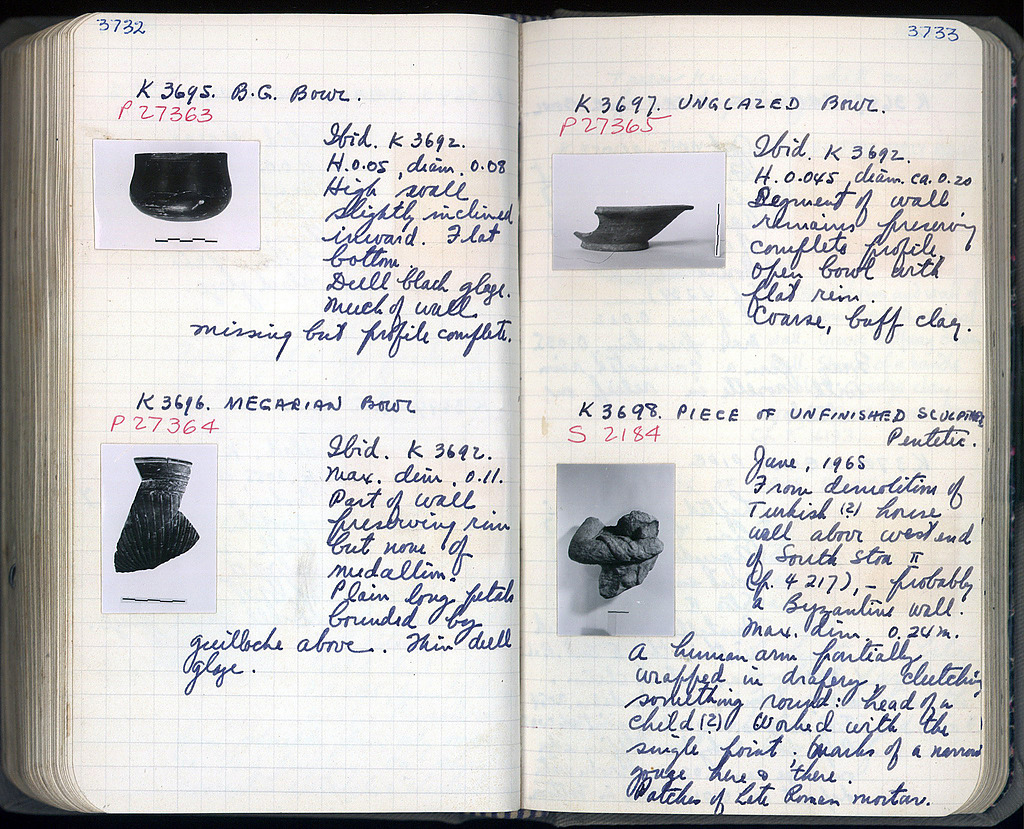 3732
K 3695. B.G. Bowl.
P 27363
Ibid. K 3692.
H. 0.05, diam. 0.08
High wall
slightly inclined
inward. Flat
bottom.
Dull black glaze.
Much of wall
missing but profile complete.
K 3696. MEGARIAN BOWL
P 27364
Ibid. K 3692.
Max. dim. 0.11.
Part of wall
preserving rim
but none of
medallion.
Plain long petals
bounded by
guilloche above. Thin dull
glaze.
3733
K 3697. UNGLAZED BOWL.
P 27365
Ibid. K 3692.
H. 0.045, diam. ca. 0.20
Segment of wall
remains preserving
complete profile.
Open bowl with
flat rim.
Coarse, buff clay.
K 3698. PIECE OF UNFINISHED SCULPTURE
S 2184
Pentelic.
June, 1965
From demolition of
Turkish (?) house
wall above west end
of South Stoa II
(p. 4217), - probably
a Byzantine wall.
Max. dim. 0.24 m.
A human arm partially
wrapped in drapery, clutching
something round: head of a
child (?) Worked with the
single point; marks of a narrow
gouge here & there.
Patches of Late Roman mortar.